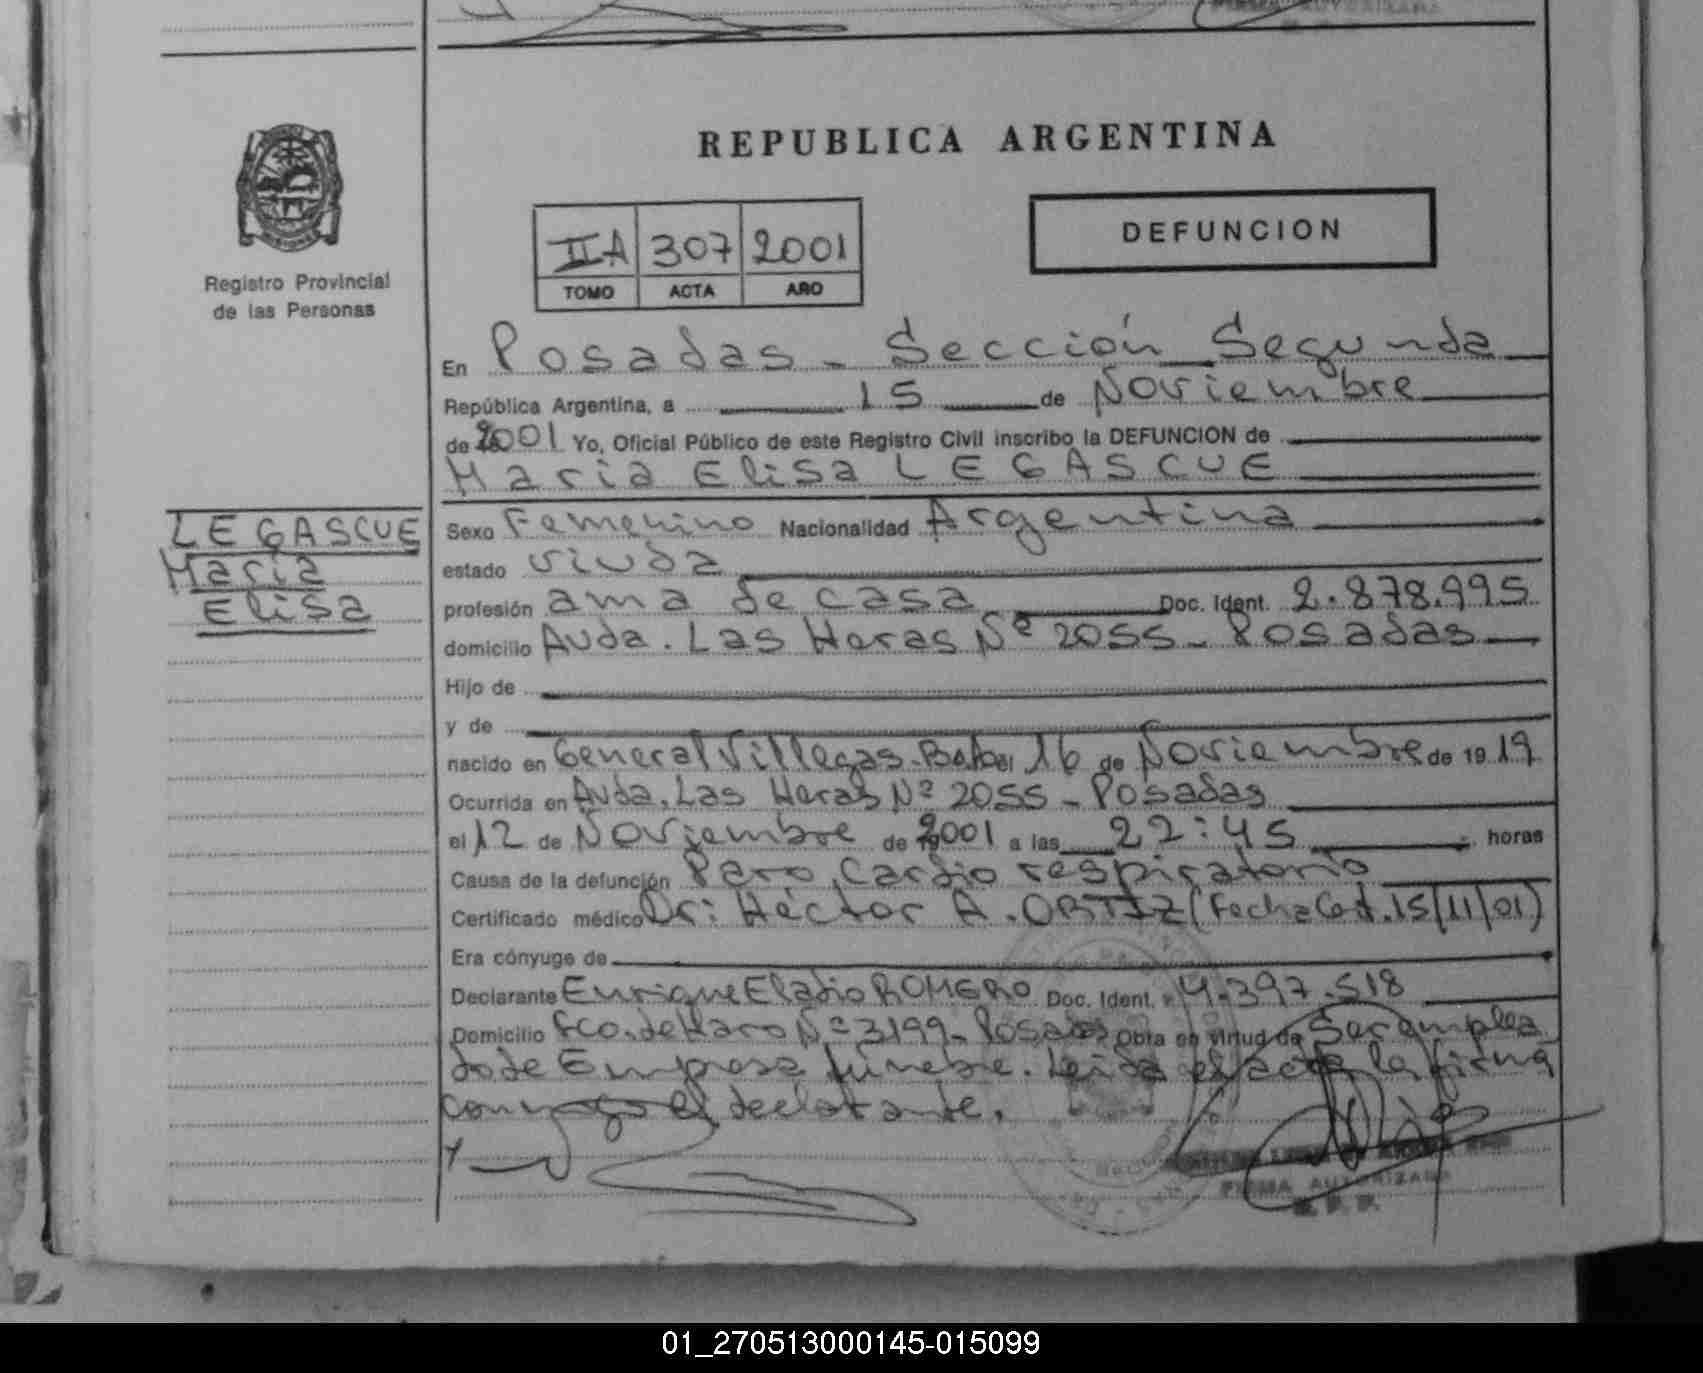 FIRMA AUTORIZADA
REPUBLICA ARGENTINA
DEFUNCION
IIA 307 2001
TOMO ACTA AÑO
Registro Provincial
de las Personas
En Posadas - Sección Segunda
República Argentina, a 15 de Noviembre
de 2001 Yo, Oficial Público de este Registro Civil inscribo la DEFUNCION de
Maria Elisa LEGASCUE
LEGASCUE
Maria
Elisa
Sexo Femenino Nacionalidad Argentina
estado viuda
profesión ama de casa Doc. Ident. 2.878.995
domicilio Avda. Las Heras Nº 2055 - Posadas
Hijo de
y de
nacido en General Villegas. el 16 de Noviembre de 19 19
Ocurrida en Avda. Las Heras Nº 2055 - Posadas
el 12 de Noviembre de 2001 a las 22:45 horas
Causa de la defunción Paro Cardio respiratorio
Certificado médico Dr: Héctor A. ORTIZ (Fecha Cert. 15/11/01)
Era cónyuge de
Declarante Enrique Eladio ROMERO Doc. Ident. 4.397.518
Domicilio Fco. de Haro Nº 3199 - Posadas Obra en virtud de Ser emplea
do de Empresa fúnebre. Leida el acta la firma
conmigo el declarante.
FIRMA AUTORIZADA
R. P. P.
01_270513000145-015099